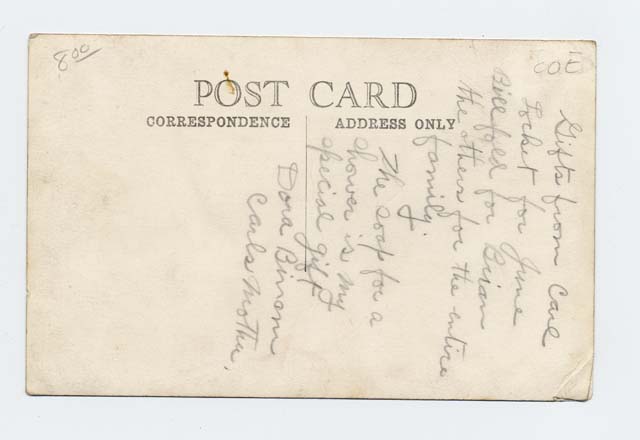 8.00
COE
POST CARD
CORRESPONDENCE
ADDRESS ONLY
Gifts from Carl
Locket for June
Billfold for Brian
the others for the entire
family.
The soap for a
shower is my
special gift
Dora Binom
Carls Mother.